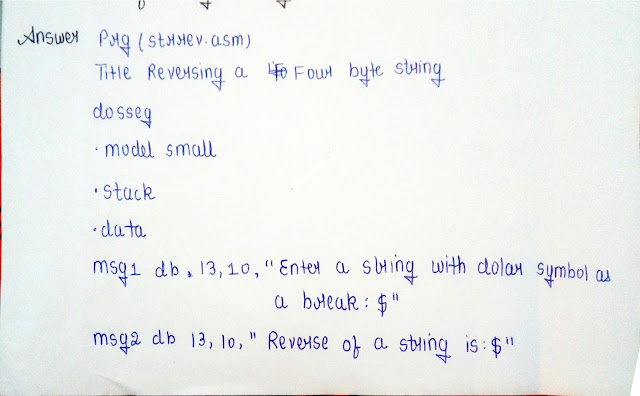 Answer Prg (strrev.asm)
Title Reversing a Four byte string
dosseg
.model small
.stack
.data
msg1 db , 13,10, "Enter a string with dolar symbol as
a break: $"
msg2 db 13,10," Reverse of a string is:$"